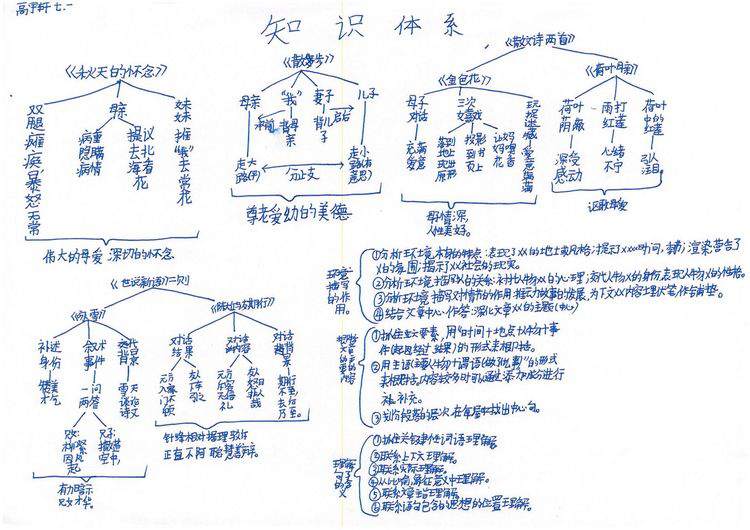 高宇轩 七.一
知识体系
《秋天的怀念》
双腿瘫痪暴怒无常
母亲
病重隐瞒病情
提议去北海看花
妹妹推“我”去赏花
伟大的母爱 深切的怀念
《散步》
母亲
“我”
妻子
儿子
背母亲
背儿子
走大路
走小路(有意思)
分歧
尊老爱幼的美德
《散文诗两首》
《金色花》
母子对话
充满爱意
三次嬉戏
投影到书页上
母子情深,
人性美好。
《荷叶母亲》
荷叶荫蔽
深受感动
雨打红莲
心绪不宁
荷叶中的红莲
引人注目
讴歌母爱
《世说新语》二则
《咏雪》
补述身份
赞美才气
叙述事件
一问两答
兄女:柳絮因风起
兄子:撒盐空中,
交代背景
雪天论诗文
有力暗示
兄女才华。
《陈太丘与友期行》
对话结果
元方入门不顾
友人下车引之
对话内容
元方应答无礼
友怒非人哉
对话背景
期行不至去后乃至。
针锋相对据理
正直不阿 聪慧
环境描写的作用。
①分析环境本身的特点:表现了XX的地士或风格;提示了XXX时间,
X的氛围;揭示了XX社会的现实。
②分析环境描写与X的关系:衬托人物X的心理;交代人物X的身份,表现人物X的性格。
③分析环境描写对情节的作用:推动故事的发展,为下文XX内容埋伏笔/作铺垫。
④结合文章中心作答:深化文章X的主题(中心)
①抓住六要素,用“时间+地点+人物+事
件(起因经过结果)的形式表概括。
②用主语(主要人物)+谓语(做了什么事)”的形式
来概括。内容较多时可以通过添加成分进行
补充。
③划分段落的层次,在每层中找出中心句。
①抓住关键性词语理解
②联系上下文理解。
③联系实际理解。
④从比喻,象征意义中理解。
⑤联系文章主旨理解。
⑥联系语句包含的思想的位置理解。